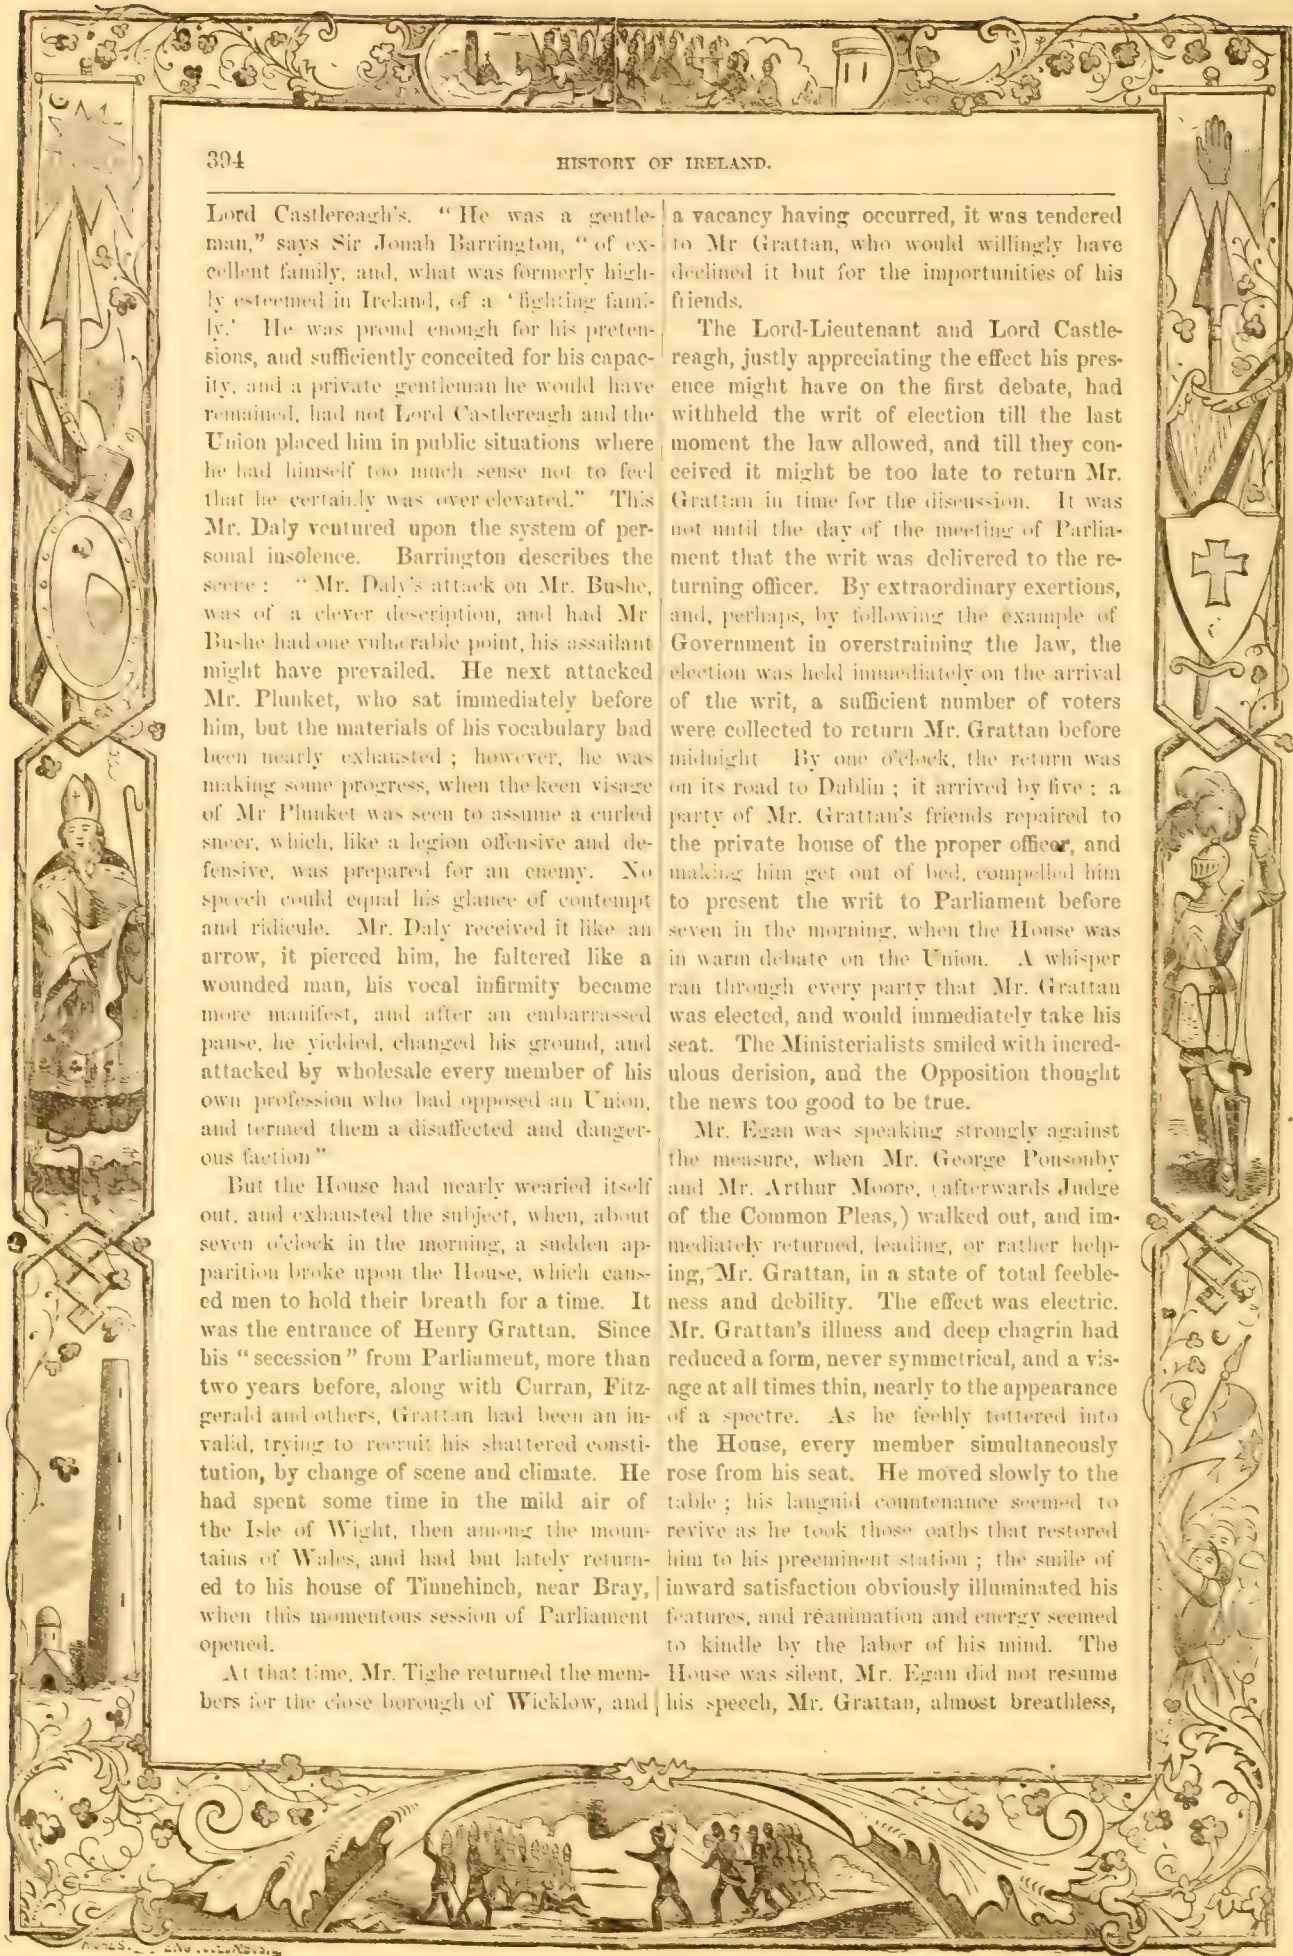 394
HISTORY OF IRELAND.
Lord Castlereagh's. "He was a gentle-
man," says Sir Jonah Barrington, "of ex-
cellent family, and, what was formerly high-
ly esteemed in Ireland, of a 'fighting fami-
ly.' He was proud enough for his preten-
sions, and sufficiently conceited for his capac-
ity, and a private gentleman he would have
remained, had not Lord Castlereagh and the
Union placed him in public situations where
he had himself too much sense not to feel
that he certainly was over elevated." This
Mr. Daly ventured upon the system of per-
sonal insolence. Barrington describes the
scene : "Mr. Daly's attack on Mr. Bushe,
was of a clever description, and had Mr
Bushe had one vulnerable point, his assailant
might have prevailed. He next attacked
Mr. Plunket, who sat immediately before
him, but the materials of his vocabulary had
been nearly exhausted ; however, he was
making some progress, when the keen visage
of Mr Plunket was seen to assume a curled
sneer, which, like a legion offensive and de-
fensive, was prepared for an enemy. No
speech could equal his glance of contempt
and ridicule. Mr. Daly received it like an
arrow, it pierced him, he faltered like a
wounded man, his vocal infirmity became
more manifest, and after an embarrassed
pause, he yielded, changed his ground, and
attacked by wholesale every member of his
own profession who had opposed an Union,
and termed them a disaffected and danger-
ous faction"
But the House had nearly wearied itself
out, and exhausted the subject, when, about
seven o'clock in the morning, a sudden ap-
parition broke upon the House, which caus-
ed men to hold their breath for a time. It
was the entrance of Henry Grattan. Since
his "secession" from Parliament, more than
two years before, along with Curran, Fitz-
gerald and others, Grattan had been an in-
valid, trying to recruit his shattered consti-
tution, by change of scene and climate. He
had spent some time in the mild air of
the Isle of Wight, then among the moun-
tains of Wales, and had but lately return-
ed to his house of Tinnehinch, near Bray,
when this momentous session of Parliament
opened.
At that time, Mr. Tighe returned the mem-
bers for the close borough of Wicklow, and
a vacancy having occurred, it was tendered
to Mr Grattan, who would willingly have
declined it but for the importunities of his
friends.
The Lord-Lieutenant and Lord Castle-
reagh, justly appreciating the effect his pres-
ence might have on the first debate, had
withheld the writ of election till the last
moment the law allowed, and till they con-
ceived it might be too late to return Mr.
Grattan in time for the discussion. It was
not until the day of the meeting of Parlia-
ment that the writ was delivered to the re-
turning officer. By extraordinary exertions,
and, perhaps, by following the example of
Government in overstraining the law, the
election was held immediately on the arrival
of the writ, a sufficient number of voters
were collected to return Mr. Grattan before
midnight By one o'clock, the return was
on its road to Dublin ; it arrived by five ; a
party of Mr. Grattan's friends repaired to
the private house of the proper officer, and
making him get out of bed, compelled him
to present the writ to Parliament before
seven in the morning, when the House was
in warm debate on the Union. A whisper
ran through every party that Mr. Grattan
was elected, and would immediately take his
seat. The Ministerialists smiled with incred-
ulous derision, and the Opposition thought
the news too good to be true.
Mr. Egan was speaking strongly against
the measure, when Mr. George Ponsonby
and Mr. Arthur Moore, (afterwards Judge
of the Common Pleas,) walked out, and im-
mediately returned, leading, or rather help-
ing, Mr. Grattan, in a state of total feeble-
ness and debility. The effect was electric.
Mr. Grattan's illness and deep chagrin had
reduced a form, never symmetrical, and a vis-
age at all times thin, nearly to the appearance
of a spectre. As he feebly tottered into
the House, every member simultaneously
rose from his seat. He moved slowly to the
table ; his languid countenance seemed to
revive as he took those oaths that restored
him to his preeminent station ; the smile of
inward satisfaction obviously illuminated his
features, and reanimation and energy seemed
to kindle by the labor of his mind. The
House was silent, Mr. Egan did not resume
his speech, Mr. Grattan, almost breathless,